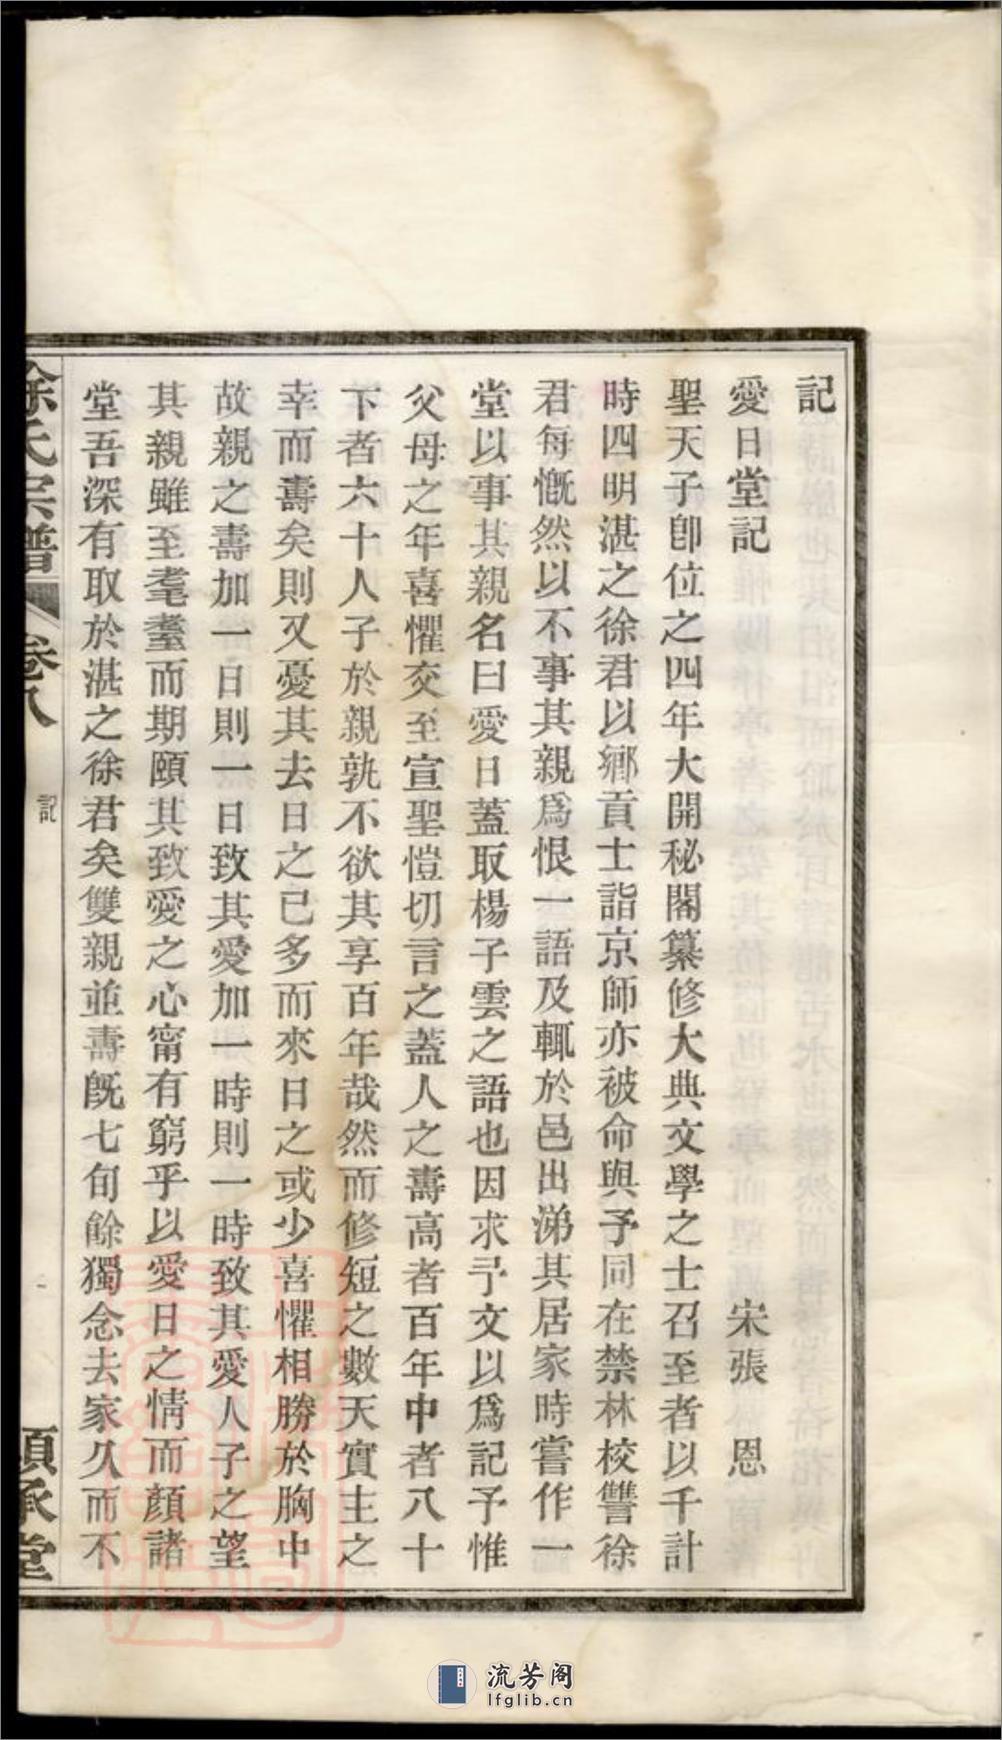 記
愛日堂記 宋張 恩
聖天子卽位之四年大開秘閣纂修大典文學之士召至者以千計
時四明湛之徐君以鄉貢士詣京師亦被命與予同在禁林校讐徐
君每慨然以不事其親爲恨一語及輒於邑出涕其居家時嘗作一
堂以事其親名曰愛日蓋取楊子雲之語也因求予文以爲記予惟
父母之年喜懼交至宣聖愷切言之蓋人之壽高者百年中者八十
下者六十人子於親孰不欲其享百年哉然而修短之數天實主之
幸而壽矣則又憂其去日之已多而來日之或少喜懼相勝於胸中
故親之壽加一日則一日致其愛加一時則一時致其愛人子之望
其親雖至耄耋而期頤其致愛之心甯有窮乎以愛日之情而顏諸
堂吾深有取於湛之徐君矣雙親並壽旣七旬餘獨念去家久而不
徐氏宗譜 卷八 記 一 順承堂
流芳阁
lfglib.cn